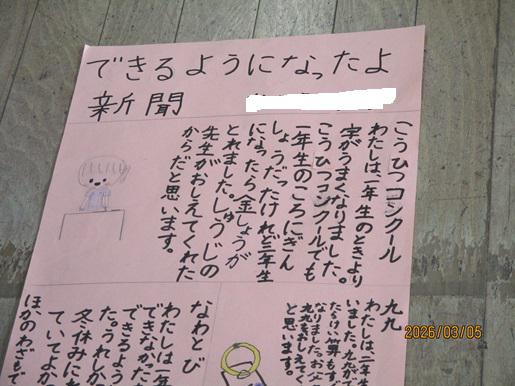 できるようになったよ
新聞
こうひつコンクール
わたしは、一年生のときより
字がうまくなりました。
こうひつコンクールでも
一年生のころにぎん
しょうだったけれど二年生
になったら金しょうが
とれました。しゅうじの
先生がおしえてくれた
からだと思います。
九九
わたしは、一年生
いました。九九が
たらけい算もす
なりました。お父
九九をおしえてく
と思います。
なわとび
わたしは一年
できなかった
できるよう
た。うれしか
冬休みにれ
ていてよか
ほかのわざもで
2026/03/05